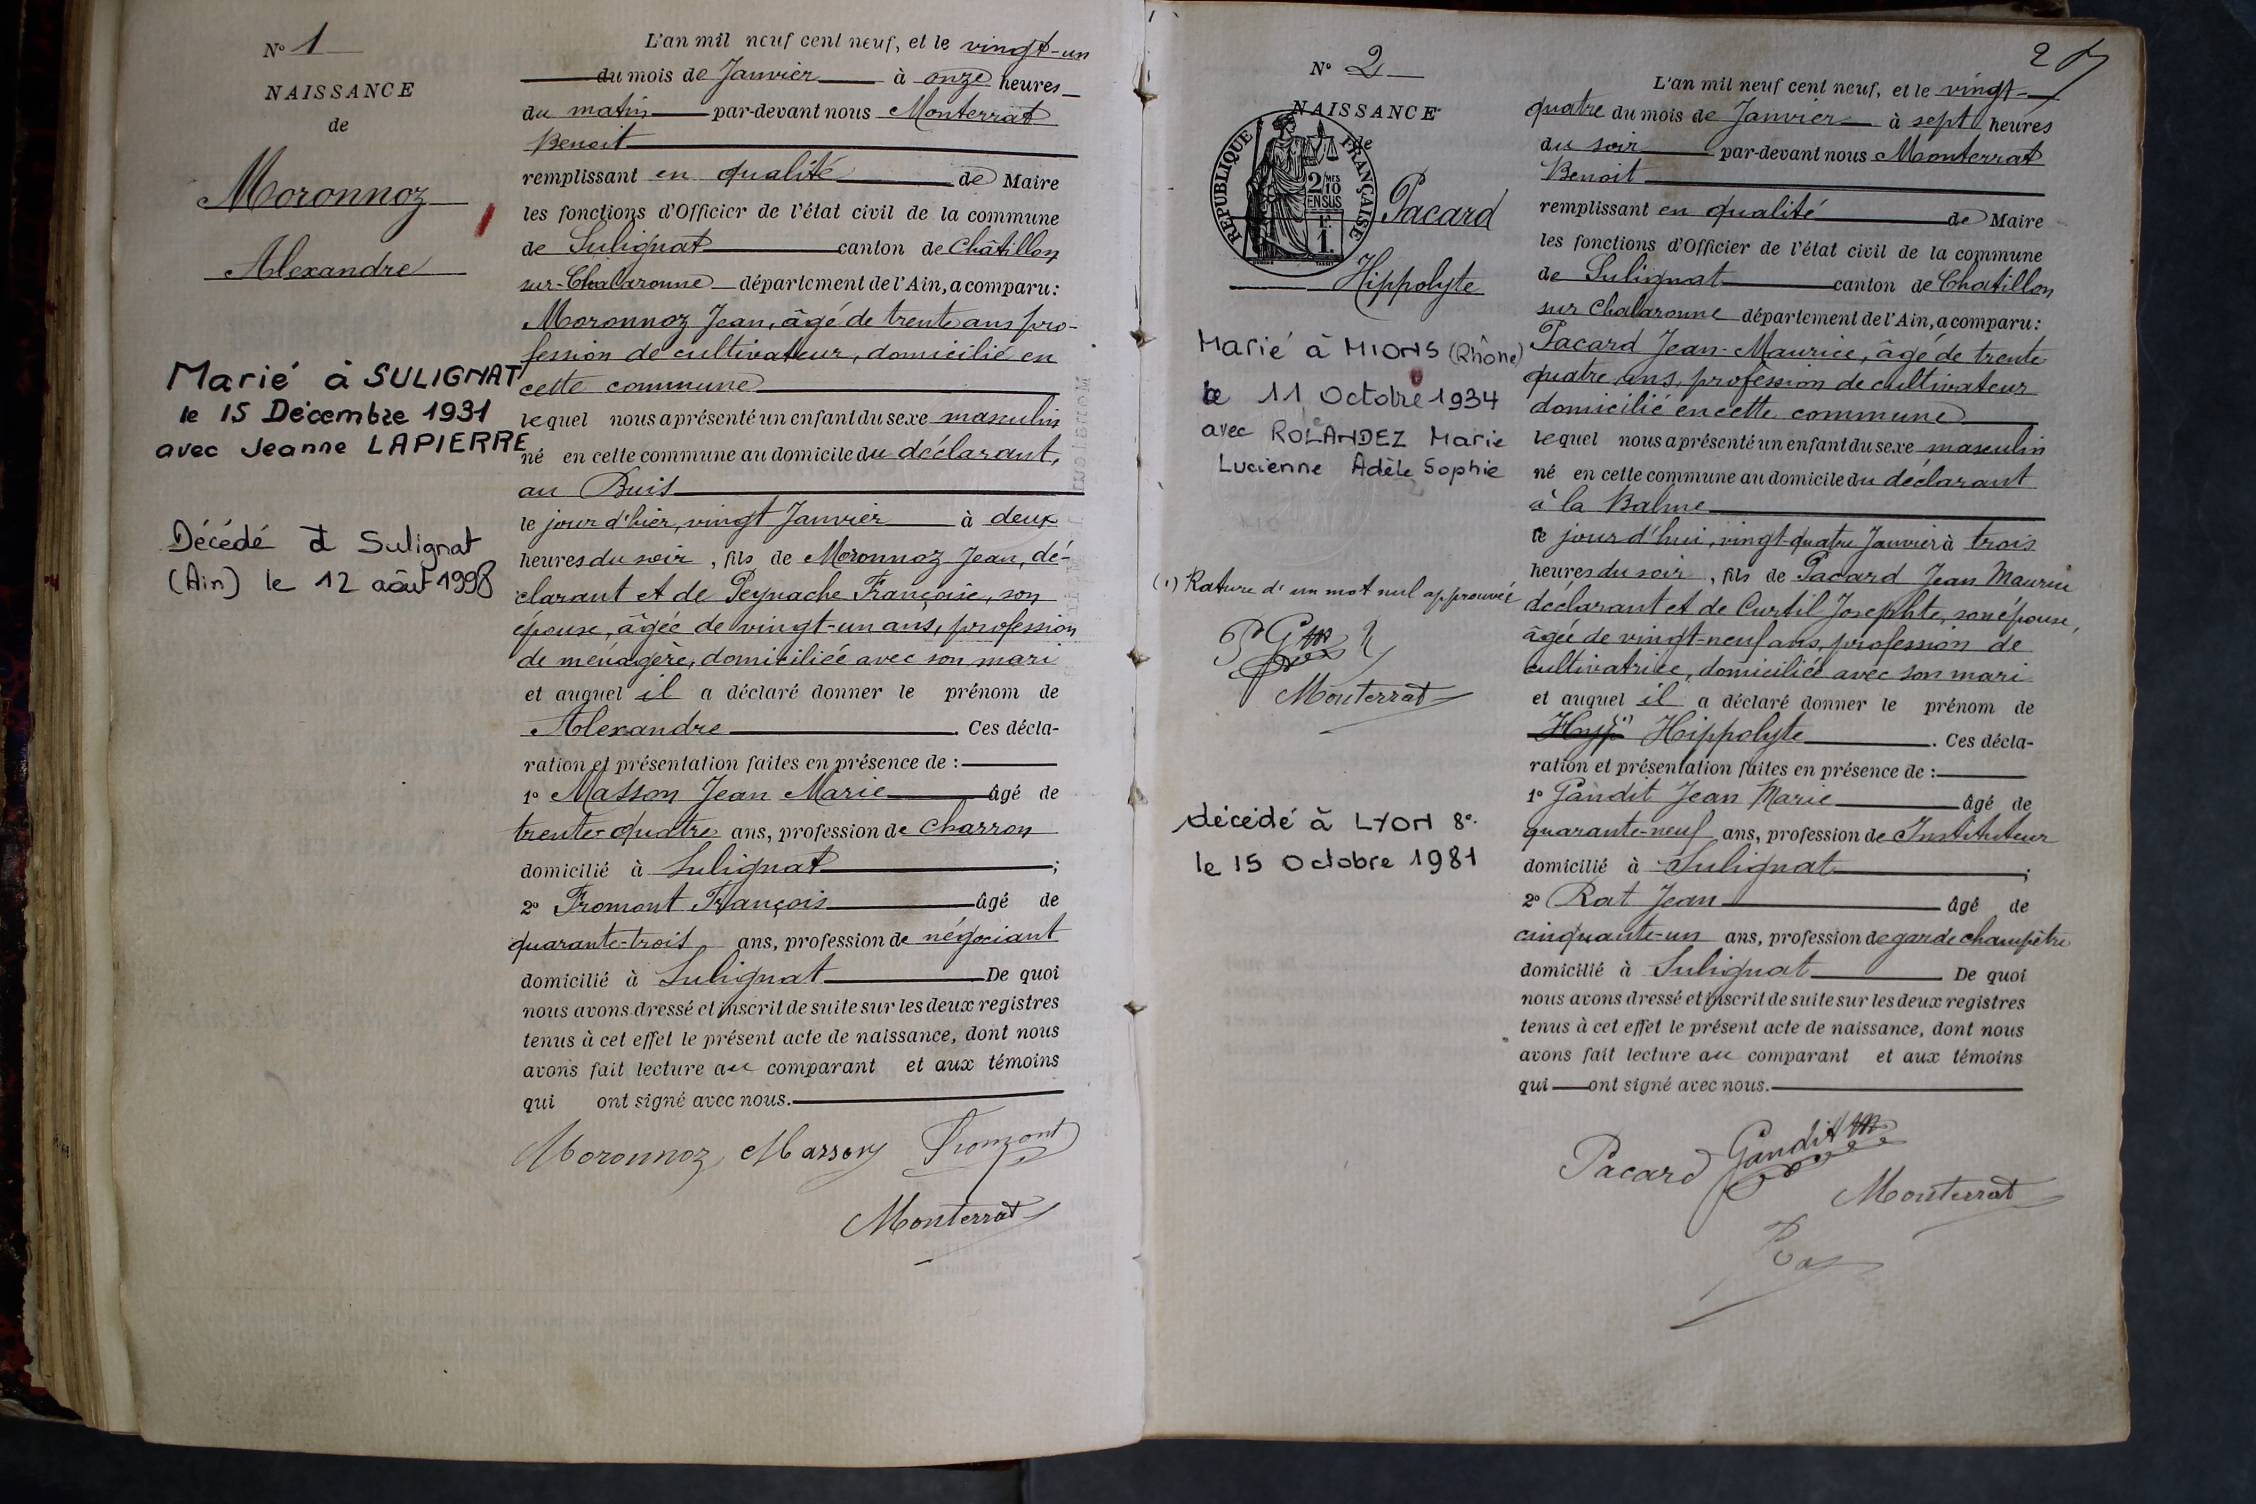 N° 1
NAISSANCE
de
Moronnoz
Alexandre
Marié à SULIGNAT
le 15 Décembre 1931
avec Jeanne LAPIERRE
Décédé à Sulignat
(Ain) le 12 août 1998
L'an mil neuf cent neuf, et le vingt-un
du mois de Janvier à onze heures
du matin par-devant nous Monterrat
Benoit
remplissant en qualité de Maire
les fonctions d'Officier de l'état civil de la commune
de Sulignat canton de Châtillon
sur-Chalaronne département de l'Ain, a comparu:
Moronnoz Jean, âgé de trente ans pro-
fession de cultivateur, domicilié en
cette commune
lequel nous a présenté un enfant du sexe masculin
né en cette commune au domicile du déclarant,
au Buis
le jour d'hier, vingt Janvier à deux
heures du soir, fils de Moronnoz Jean, dé-
clarant et de Peynache Françoise, son
épouse, âgée de vingt-un ans, profession
de ménagère, domiciliée avec son mari
et auquel il a déclaré donner le prénom de
Alexandre. Ces décla-
ration et présentation faites en présence de :
1° Masson Jean Marie âgé de
trente-quatre ans, profession de charron
domicilié à Sulignat ;
2° Fromont François âgé de
quarante-trois ans, profession de négociant
domicilié à Sulignat De quoi
nous avons dressé et inscrit de suite sur les deux registres
tenus à cet effet le présent acte de naissance, dont nous
avons fait lecture au comparant et aux témoins
qui ont signé avec nous.
Moronnoz Masson Fromont
Monterrat
2
N° 2
NAISSANCE
de
REPUBLIQUE FRANÇAISE
2/10 MES
EN SUS
1 F.
1.
Pacard
Hippolyte
Marié à MIONS (Rhône)
le 11 Octobre 1934
avec ROLANDEZ Marie
Lucienne Adèle Sophie
(1) Rature d'un mot nul approuvée
Monterrat
décédé à LYON 8e.
le 15 Octobre 1981
L'an mil neuf cent neuf, et le vingt-
quatre du mois de Janvier à sept heures
du soir par-devant nous Monterrat
Benoit
remplissant en qualité de Maire
les fonctions d'Officier de l'état civil de la commune
de Sulignat canton de Chatillon
sur Chalaronne département de l'Ain, a comparu:
Pacard Jean-Maurice, âgé de trente
quatre ans, profession de cultivateur
domicilié en cette commune
lequel nous a présenté un enfant du sexe masculin
né en cette commune au domicile du déclarant
à la Balme
ce jour d'hui, vingt-quatre Janvier à trois
heures du soir, fils de Pacard Jean Maurice
déclarant et de Curtil Josephte, son épouse,
âgée de vingt-neuf ans, profession de
cultivatrice, domiciliée avec son mari
et auquel il a déclaré donner le prénom de
Hyp (1) Hippolyte. Ces décla-
ration et présentation faites en présence de :
1° Gandit Jean Marie âgé de
quarante-neuf ans, profession de Instituteur
domicilié à Sulignat ;
2° Rat Jean âgé de
cinquante-un ans, profession de garde champêtre
domicilié à Sulignat De quoi
nous avons dressé et inscrit de suite sur les deux registres
tenus à cet effet le présent acte de naissance, dont nous
avons fait lecture au comparant et aux témoins
qui ont signé avec nous.
Pacard Gandit
Monterrat
Rat